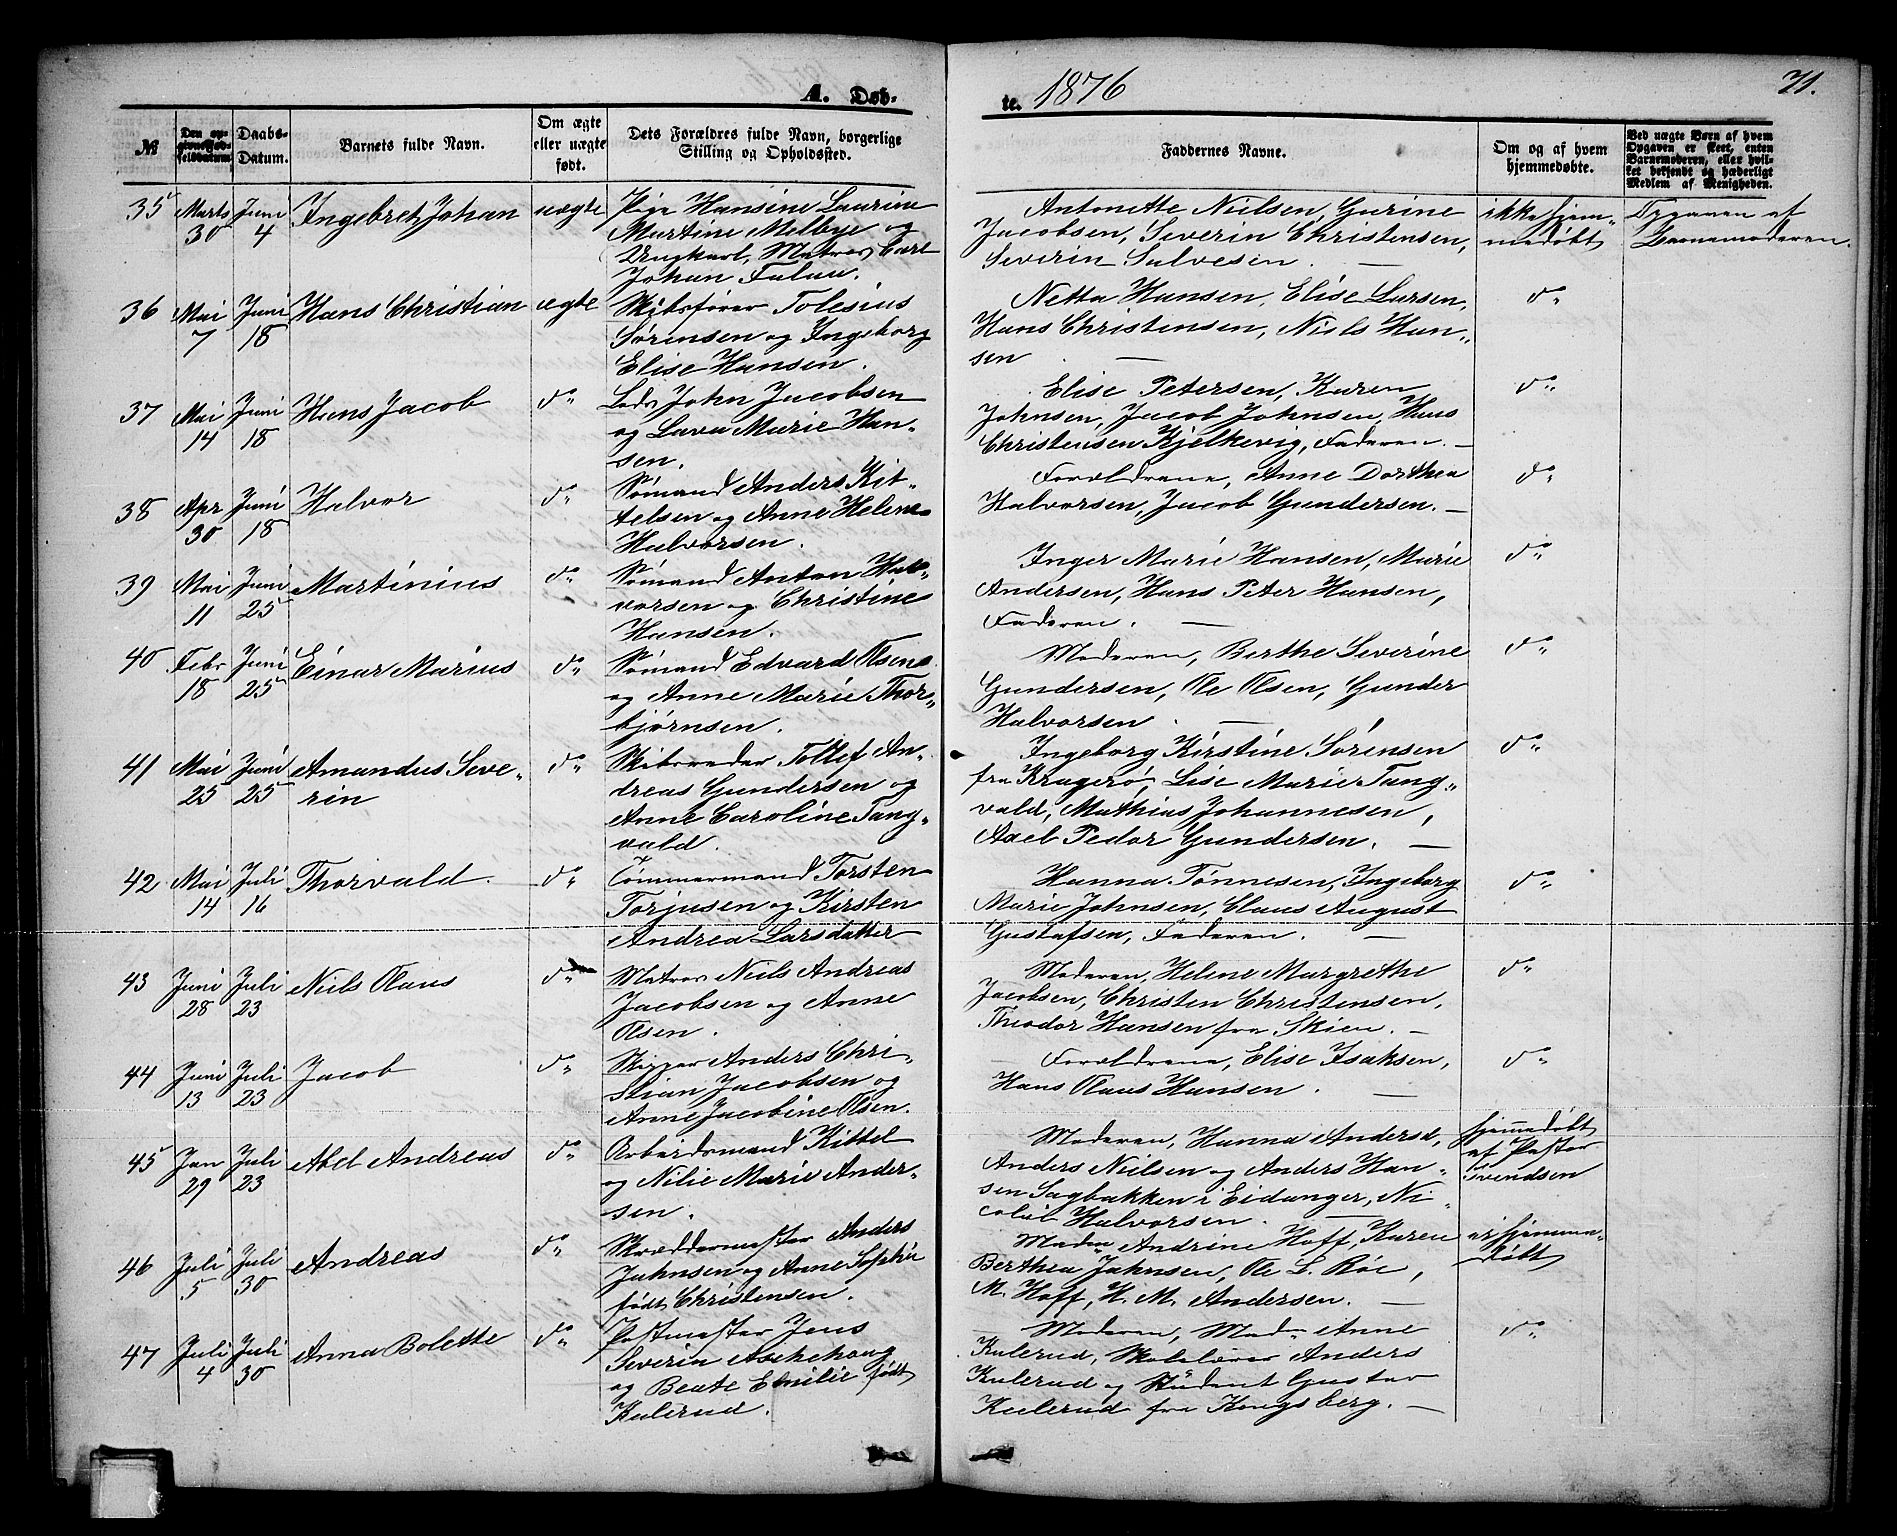 A. Døb-
te. 1876
71.
№
Den opgivne Fødselsdatum
Daabs-
Datum.
Barnets fulde Navn.
Om ægte
eller uægte
født.
Dets Forældres fulde Navn, borgerlige
Stilling og Opholdssted.
Faddernes Navne.
Om og af hvem
hjemmedøbte.
Ved uægte Børn af hvem
Opgaven er skeet, enten
Barnemoderen, eller hvil-
ket bekjendt og hæderligt
Medlem af Menigheden.
35 Marts 30 Juni 4 Ingebret Johan uægte
Pige Hansine Laurine
Martine Melbye og
Ungkarl, Matros Carl
Johan Falau.
Antonette Nielsen, Gurine
Jacobsen, Severin Christensen,
Severin Salvesen. —
ikke hjem-
medøbt
Opgaven af
Barnemoderen.
36 Mai 7 Juni 18 Hans Christian ægte
Skibsfører Tolesius
Sørensen og Ingeborg
Elise Hansen.
Netta Hansen, Elise Larsen,
Hans Christensen, Niels Han-
sen —
do
37 Mai 14 Juni 18 Hans Jacob do
Lods John Jacobsen
og Lava Marie Han-
sen.
Elise Petersen, Karen
Johnsen, Jacob Johnsen, Hans
Christensen Kjelkevig, Faderen. —
do
38 Apr 30 Juni 18 Halvor do
Sømand Anders Kit-
telsen og Anne Helene
Halvorsen.
Forældrene, Anne Dorthea
Halvorsen, Jacob Gundersen. —
do
39 Mai 11 Juni 25 Martinius do
Sømand Anton Hal-
vorsen og Christine
Hansen.
Inger Marie Hansen, Marie
Andersen, Hans Peter Hansen,
Faderen. —
do
40 Febr 18 Juni 25 Einar Marius do
Sømand Edvard Olsen
og Anne Marie Thor-
bjørnsen.
Moderen, Berthe Severine
Gundersen, Ole Olsen, Gunder
Halvorsen. —
do
41 Mai 25 Juni 25 Amandus Seve-
rin do
Skibsreder Tollef An-
dreas Gundersen og
Anne Caroline Tang-
vald.
Ingeborg Kirstine Sørensen
fra Kragerø, Lise Marie Tang-
vald, Mathias Johannesen,
Axel Peder Gundersen. —
do
42 Mai 14 Juli 16 Thorvald. do
Tømmermand Torsten
Torjusen og Kirsten
Andrea Larsdatter
Hanna Tønnesen, Ingeborg
Marie Johnsen, Claus August
Gustafsen, Faderen. —
do
43 Juni 28 Juli 23 Niels Olaus do
Matros Niels Andreas
Jacobsen og Anne
Olsen.
Moderen, Helene Margrethe
Jacobsen, Christen Christensen,
Theodor Hansen fra Skien. —
do
44 Juni 13 Juli 23 Jacob do
Skipper Anders Chri-
stian Jacobsen og
Anne Jacobine Olsen.
Forældrene, Elise Isaksen,
Hans Olaus Hansen. —
do
45 Jan 29 Juli 23 Abel Andreas do
Arbeidsmand Kittel
og Nilie Marie Ander-
sen.
Moderen, Hanna Andersd,
Anders Nielsen og Anders Han-
sen Sagbakken i Eidanger, Ni-
colai Halvorsen. —
hjemmedøbt
af Pastor
Svendsen
46 Juli 5 Juli 30 Andreas do
Skreddermester Anders
Jahnsen og Anne Sophie
født Christensen.
Madm Andrine Hoff, Karen
Berthea Jahnsen, Ole L. Röe,
M. Hoff, H. M. Andersen. —
ei hjemme-
døbt
47 Juli 4 Juli 30 Anna Bolette do
Postmester Jens
Severin Aschehoug
og Beate Emilie født
Kulerud.
Moderen, Mad. Anne
Kulerud, Skolelærer Anders
Kulerud og Student Gustav
Kulerud fra Kongsberg. —
do